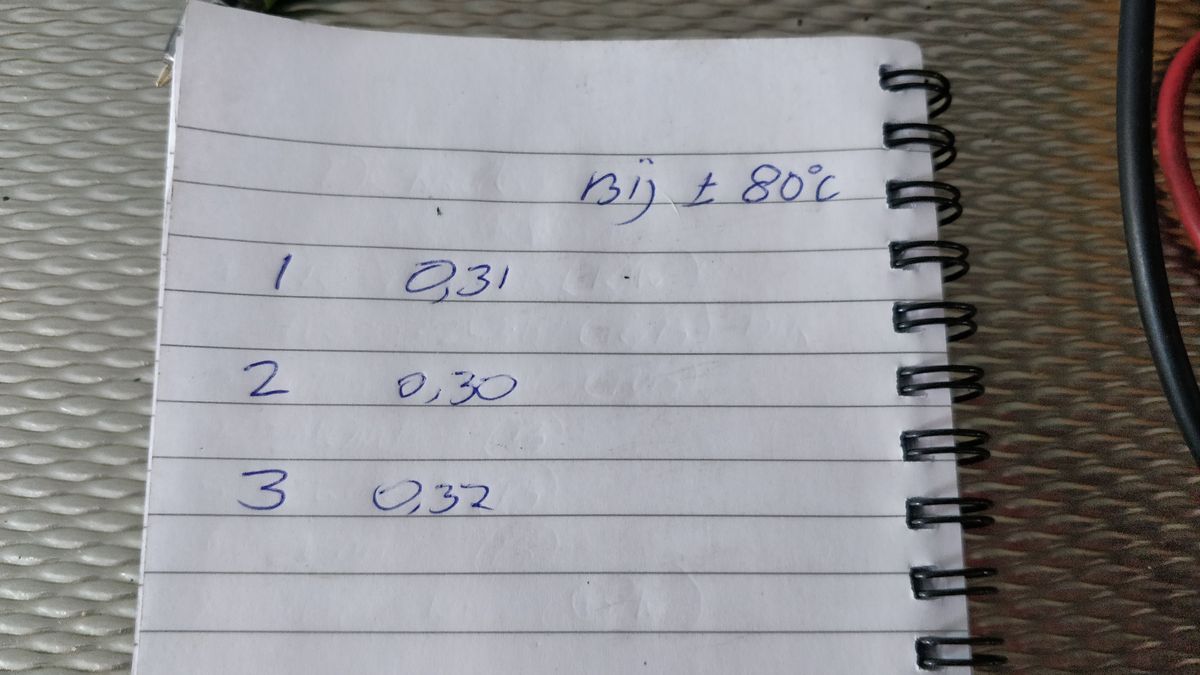 Bij ± 80°C
1 0,31
2 0,30
3 0,32